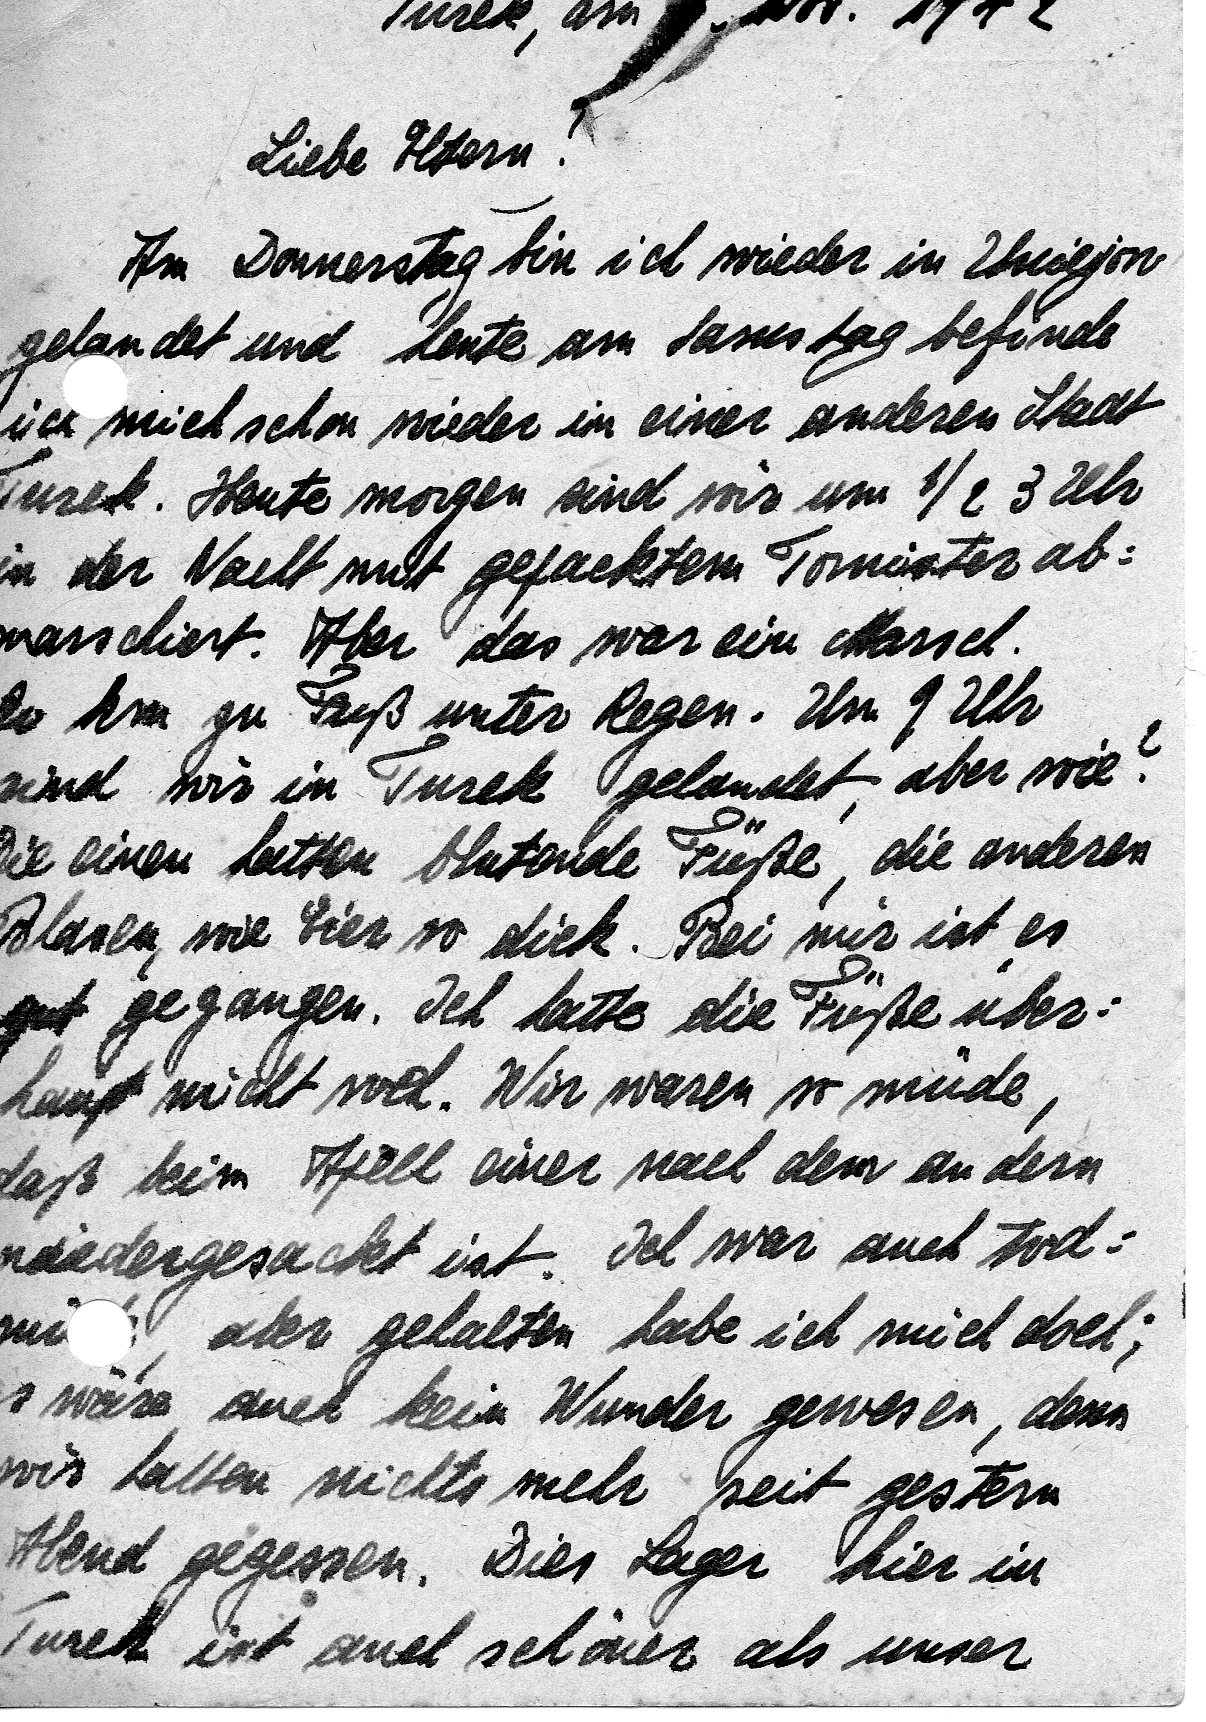 Turek, am Nov. 1942
Liebe Eltern!
Am Donnerstag bin ich wieder in Uniejow
gelandet und heute am Samstag befinde
ich mich schon wieder in einer anderen Stadt
Turek. Heute morgen sind wir um 1/2 3 Uhr
in der Nacht mit gepacktem Tornister ab=
marschiert. Aber das war ein Marsch.
km zu Fuß unter Regen. Um 9 Uhr
sind wir in Turek gelandet, aber wie?
Die einen hatten blutende Füße, die anderen
Blasen, wie Eier so dick. Bei mir ist es
gut gegangen. Ich hatte die Füße über=
haupt nicht weh. Wir waren so müde,
daß beim Apell einer nach dem andern
niedergesackt ist. Ich war auch tod=
aber gehalten habe ich mich doch;
es wäre auch kein Wunder gewesen, denn
wir hatten nichts mehr seit gestern
Abend gegessen. Dies Lager hier in
Turek ist auch schöner als unser